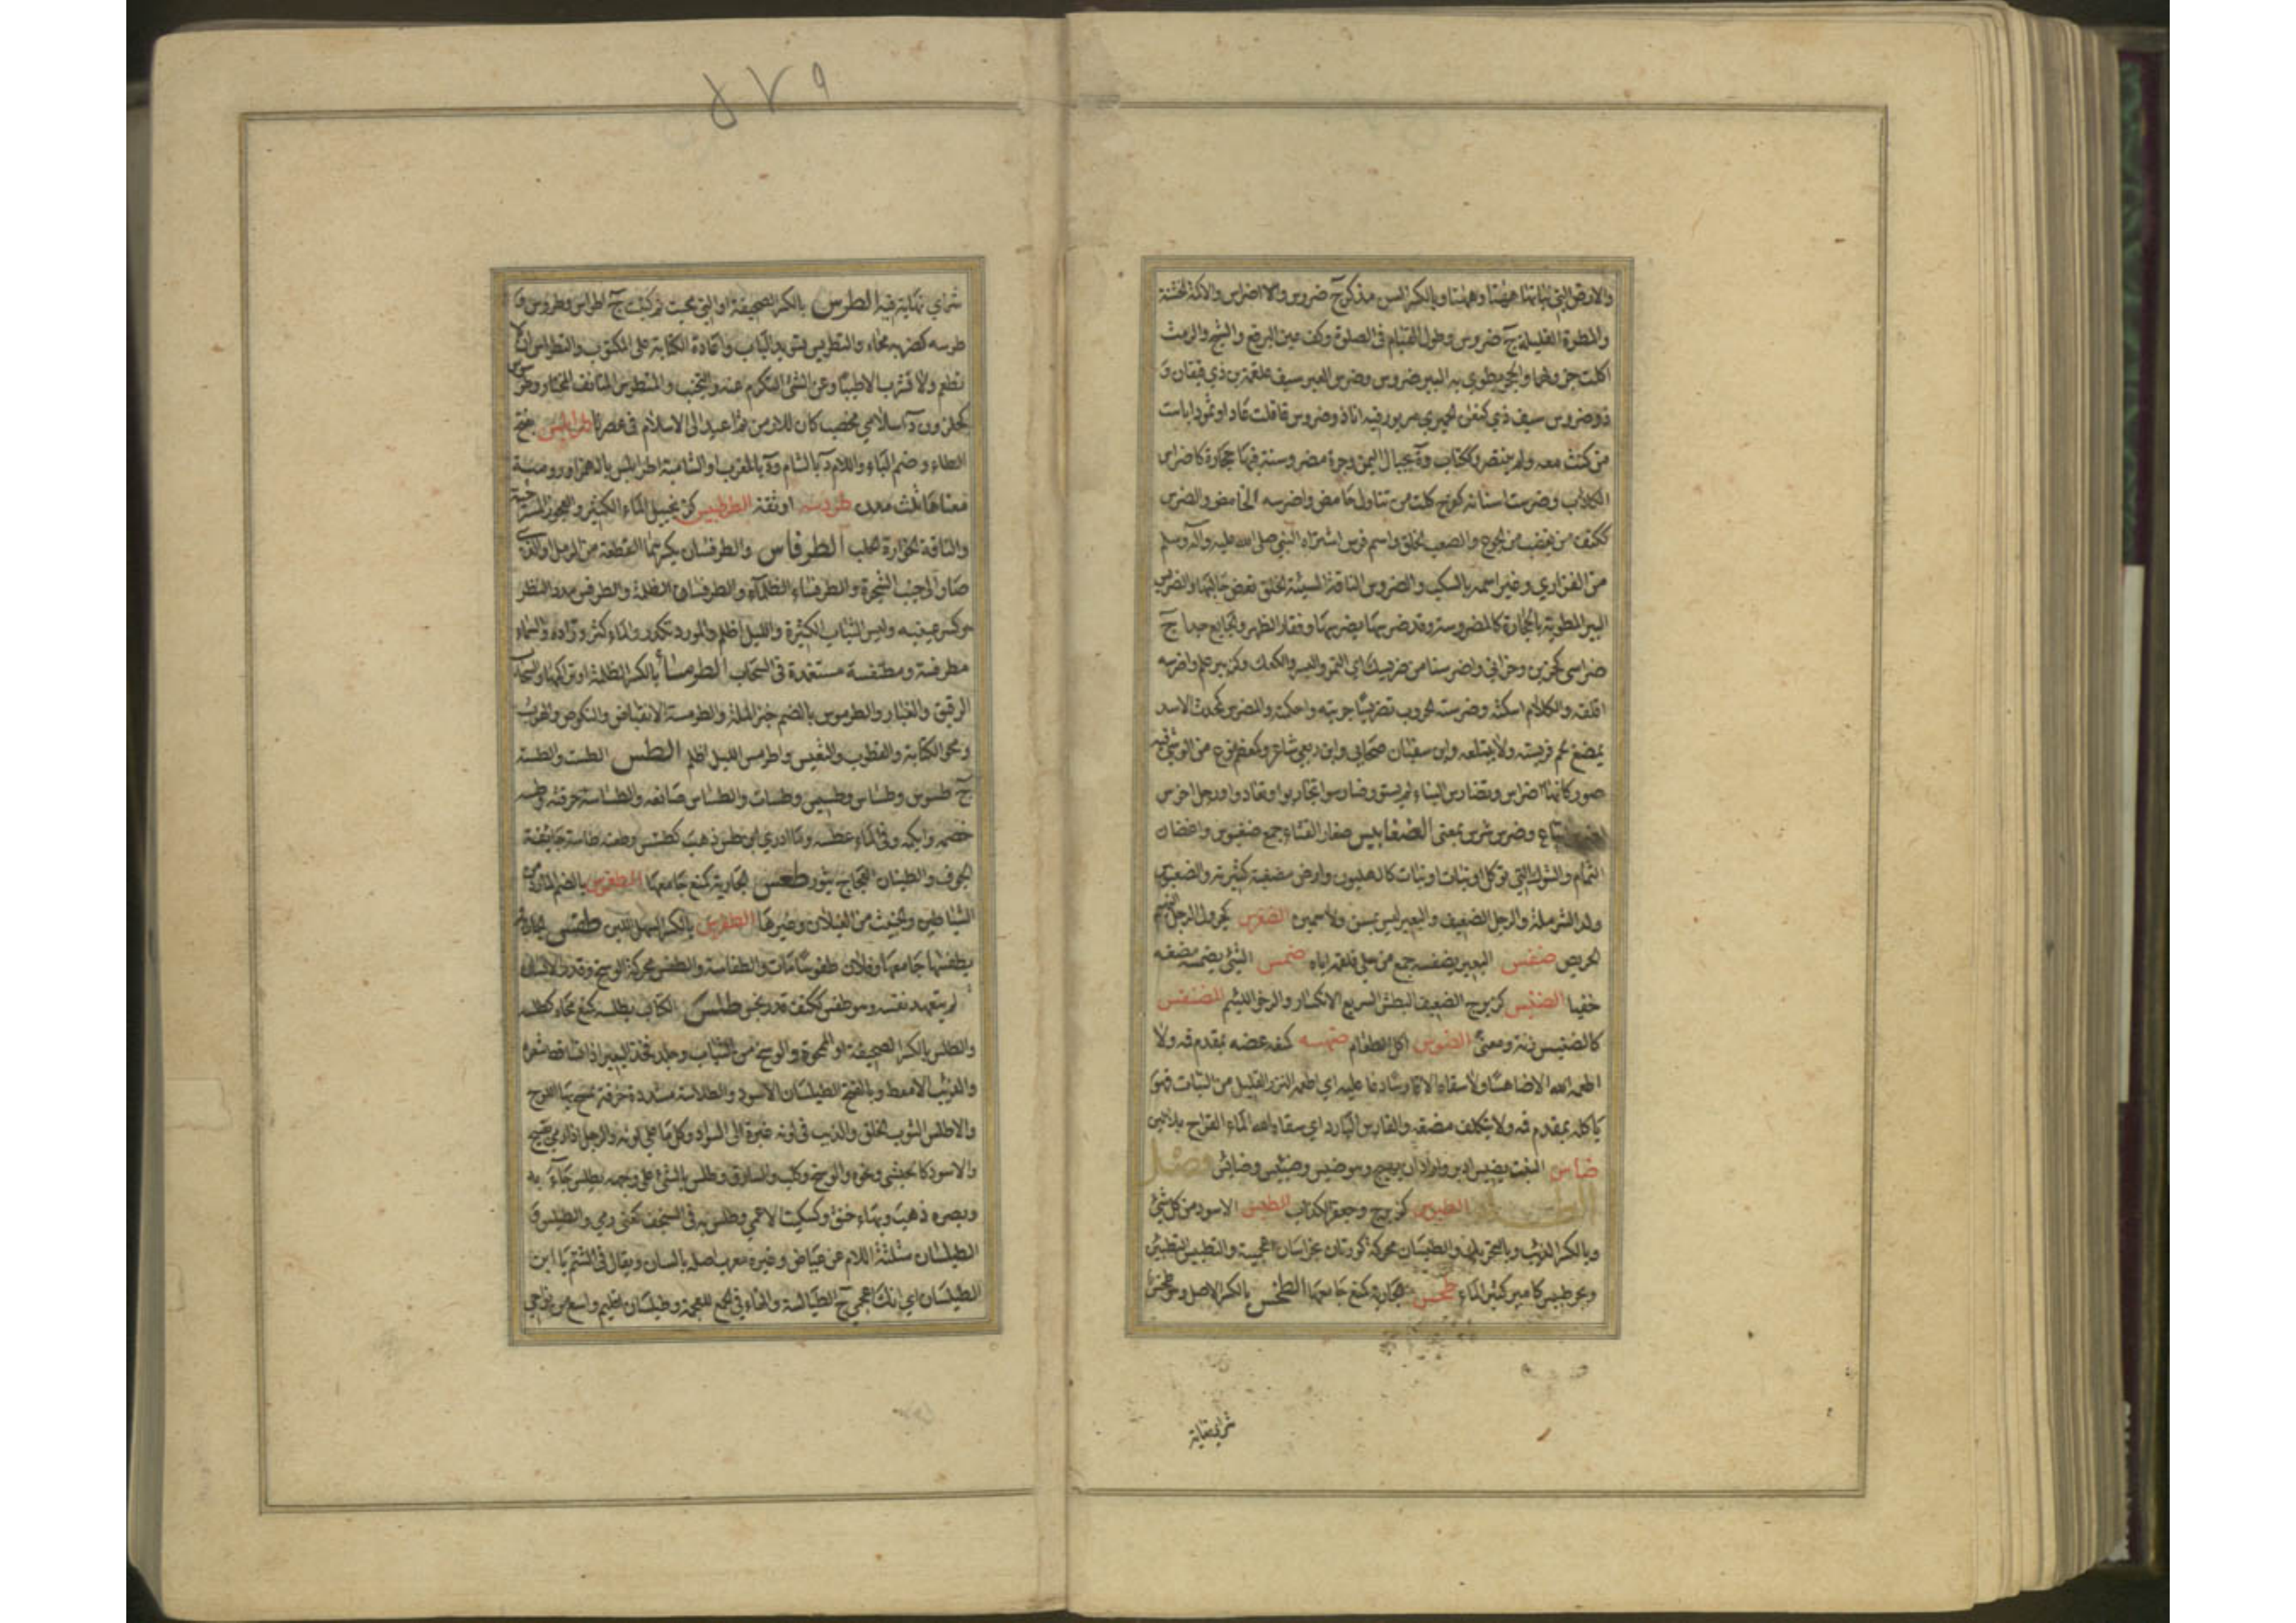 والارض التي نباتها ههنا وههنا وبالكسر السن مذكر ج ضروس واضراس والاكمة الخشنة
والمطرة القليلة ج ضروس وطول القيام في الصلوة وكف عين البرقع والشيح والرمث
اكلت جذولهما والحجر يطوى به البير ج ضروس وضرس العير سيف علقمة بن ذي قيقان و
ذو ضروس سيف ذي كنعان الحميري مزبور فيه انا ذو ضروس قاتلت عادا وثمودا باست
من كنت معه ولم ينتصر وككتاب ة بجبال اليمن وحرة مضروسة فيها حجارة كاضراس
الكلاب وضرست اسنانه كفرح كلت من تناول حامض واضرسه الحامض والضرس
ككتف من يغضب من الجوع والصعب الخلق واسم فرس اشتراه النبي صلى الله عليه وآله وسلم
من الفزاري وغير اسمه بالسكب والضروس الناقة السيئة الخلق تعض حالبها والضريس
البير المطوية بالحجارة كالمضروسة وقد ضرسها يضرسها وفقار الظهر والجايع جدا ج
ضراسى كحزين وحزانى واضرسنا من ضريسك اي التمر والبسر والكعك وكزبير علم واضرسه
اقلقه وبالكلام اسكته وضرسته الحروب تضريسا جربته واحكمته والمضرس كمحدث الاسد
يمضغ لحم فريسته ولا يبتلعه وابن سفيان صحابي وابن ربعي شاعر وكمعظم نوع من الوشي فيه
صور كانها اضراس وتضارس البناء لم يستو وضارسوا تجاربوا وتعادوا ورجل اخرس
اضرس اتباع وضرس شرس بمعنى الضغابيس صغار القثاء جمع ضغبوس واغصان
الثمام والشوك التي توكل او نبات كالهليون وارض مضغبة كثيرته والضغبوس
ولد الثرملة والرجل الضعيف والبعير ليس بمسن ولا سمين الضغرس كجرول الرجل النهم
الحريص ضفس البعير يضفسه جمع من حلي فلقمه اياه ضمس الشئ يضمسه مضغه
خفيا الضنبس كزبرج الضعيف البطش السريع الانكسار والرخو اللئيم الضنفس
كالضنبس زنة ومعنى الضوس اكل الطعام ضهسه كمنعه عضه بمقدم فيه ولا
اطعمه الله الا ضاهسا ولا سقاه الا قارسا دعا عليه اي اطعمه النزر القليل من النبات فهو
ياكله بمقدم فيه ولا يتكلف مضغه والقارس البارد اي سقاه الله الماء القراح بلا لبن
ضاس النبت يضيس ادبر واراد ان يهيج وهو ضيس وضيس وضائس فصل
الطاء الطبرس كزبرج وجعفر الكذاب الطبس الاسود من كل شئ
وبالكسر الذئب وبالتحريك والطبسان محركة كورتان بخراسان اعجمية والتطبيس التطيين
وبحر طبيس كامير كثير الماء طحس الجارية كمنع جامعها الطخس بالكسر الاصل وهو طخس
شر اي نهاية فيه
شر اي نهاية فيه الطرس بالكسر الصحيفة او التي محيت ثم كتبت ج اطراس وطروس و
طرسه كضربه محاه والتطريس تسويد الباب واعادة الكتابة على المكتوب والتطرس ان لا
تطعم ولا تشرب الا طيبا وعن الشئ التكرم عنه والتجنب والمتطرس المتانق المختار وطرسوس
كحلزون د اسلامي مخصب كان للارمن ثم اعيد الى الاسلام في عصرنا طرابلس بفتح
الطاء وضم الباء واللام د بالشام ود بالمغرب او الشامية اطرابلس بالهمز او رومية
معناها ثلث مدن طردسه اوثقه الطرطبيس كزنجبيل الماء الكثير والعجوز المسترخية
والناقة الخوارة الحلب الطرفاس والطرفسان بكسرهما القطعة من الرمل او الذي
صار الى جنب الشجرة والطرفساء الظلماء والطرفسان الظلمة والطرفس حدد النظر
او كسر عينيه ولبس الثياب الكثيرة والليل اظلم والمورد تكدر والماء كثر وراده والسماء
مطرفسة ومطنفسة مستغمدة في السحاب الطرمساء بالكسر الظلمة او تراكمها والسحاب
الرقيق والغبار والطرموس بالضم خبز الملة والطرمسة الانقباض والنكوص والهرب
ومحو الكتابة والقطوب والتعبس واطرمس الليل اظلم الطس الطست والطسة
ج طسوس وطساس وطسيس وطسات والطساس صانعه والطساسة حرفته وطسه
خصمه وابكمه وفي الماء غطسه وما ادري اين طس ذهب كطسس وطعنة طاسة جايفة
الجوف والطسان العجاج يثور طعس الجارية كمنع جامعها الطغموس بالضم المارد من
الشياطين والخبيث من الغيلان وغيرها الطفرس بالكسر السهل اللين طفس الجارية
يطفسها جامعها وفلان طفوسا مات والطفاسة والطفس محركة الوسخ وقذر الانسان
لم يتعهد نفسه وهو طفس ككتف قذر نجس طلس الكتاب يطلسه كنع محاه كطلسه
والطلس بالكسر الصحيفة او الممحوة والوسخ من الثياب وجلد فخذ البعير اذا تساقط شعره
والذئب الامعط وبالفتح الطيلسان الاسود والطلاسة مشددة خرقة يمسح بها اللوح
والاطلس الثوب الخلق والذئب في لونه غبرة الى السواد وكل ما على لونه والرجل اذا رمي بقبيح
والاسود كالحبشي ونحوه والوسخ وكلب والسارق وطلس بالشئ على وجهه يطلس جاء به
وبصره ذهب وبها خنق وكسكيت الاعمى وطلس به في السجن كعني رمي والطيلس و
الطيلسان مثلثة اللام عن عياض وغيره معرب اصله تالسان ويقال في الشتم يا ابن
الطيلسان اي انك اعجمي ج الطيالسة والهاء في الجمع للعجمة وطيلسان اقليم واسع من نواحي